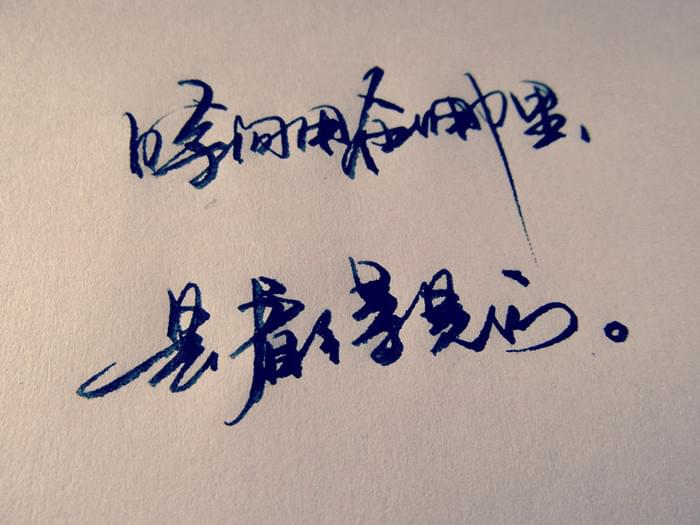 时间用在哪里、
是看得見的。